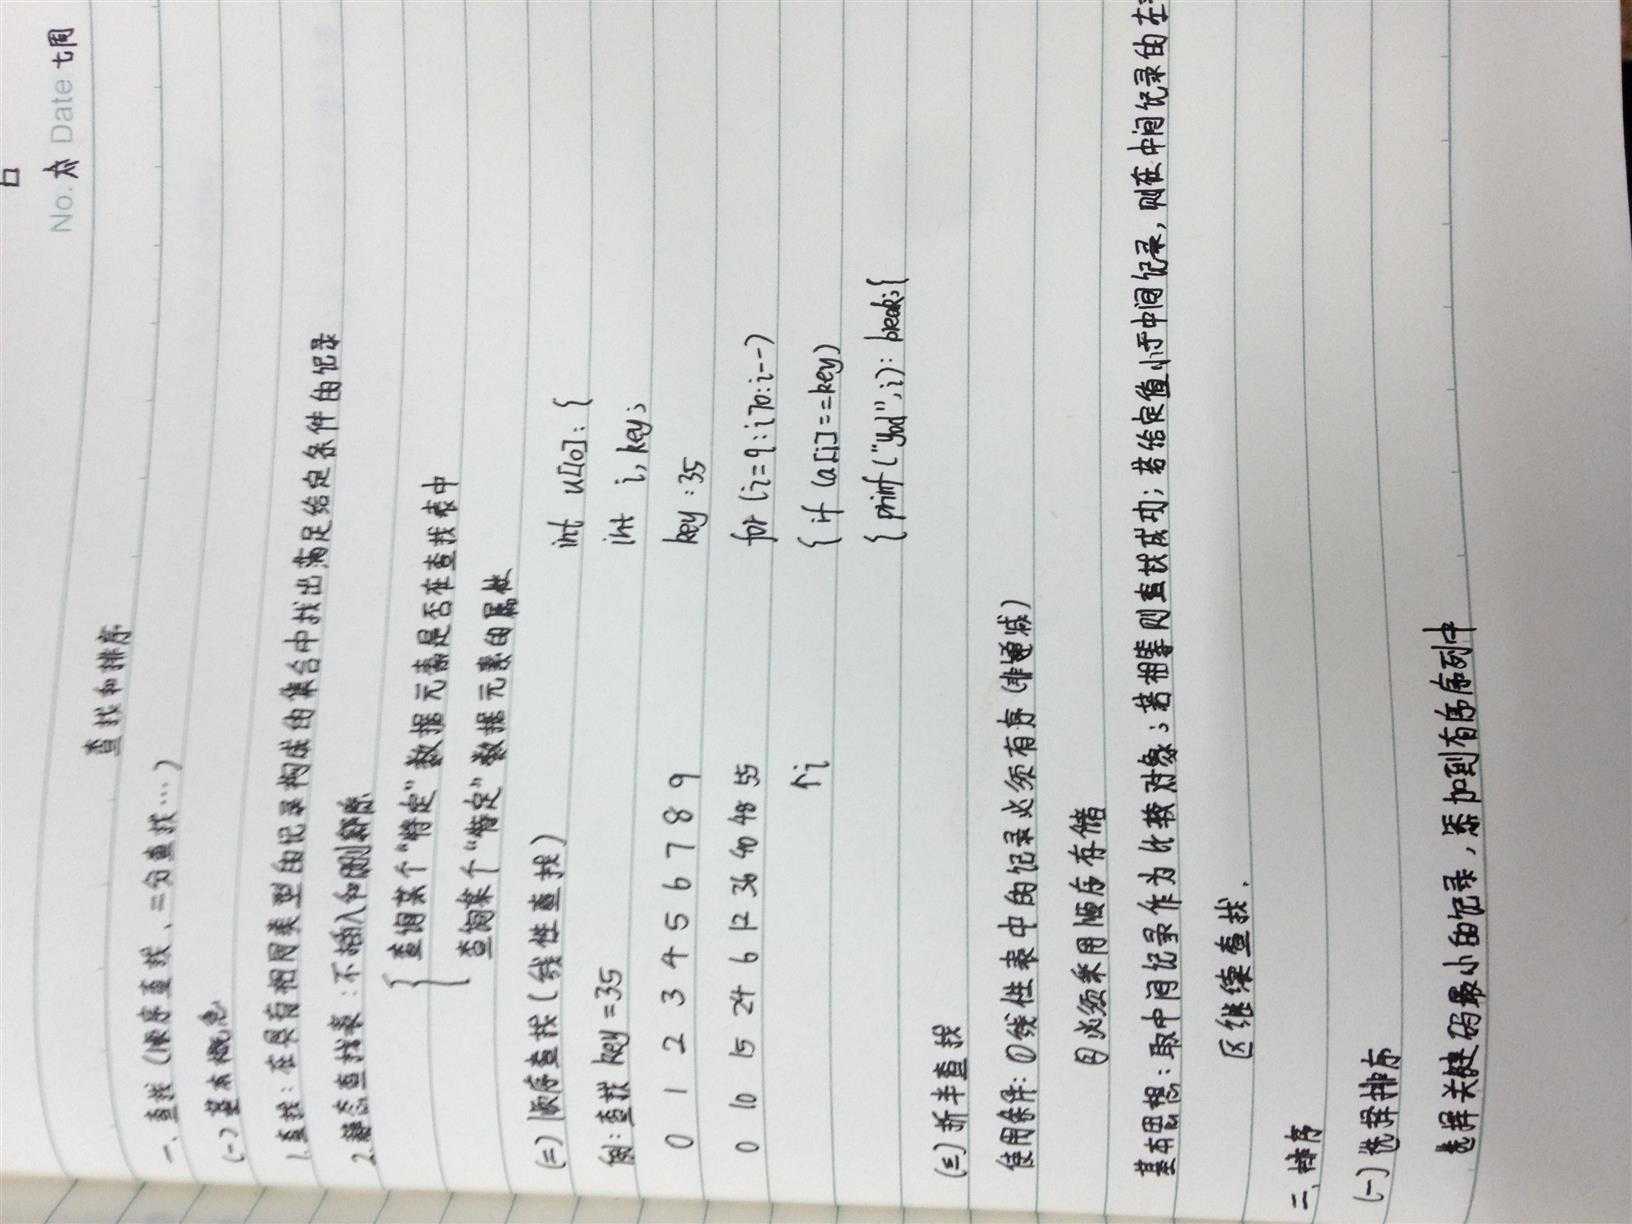 No. 六 Date 七周
查找和排序
一、查找 (顺序查找、二分查找…)
(一) 基本概念
1.查找：在具有相同类型的记录构成的集合中找出满足给定条件的记录
2.静态查找表：不插入和删除
查询某个“特定”数据元素是否在查找表中
查询某个“特定”数据元素的属性
(二) 顺序查找 (线性查找)
int a[10]; {
例：查找 key=35
int i, key;
0 1 2 3 4 5 6 7 8 9
key : 35
0 10 15 24 6 12 36 40 48 55
for (i=9; i>0; i--)
↑i
{ if (a[i]==key)
{ printf ("
", i); break; {
(三) 折半查找
使用条件: ①线性表中的记录必须有序 (非递减)
②必须采用顺序存储
基本思想：取中间记录作为比较对象；若相等则查找成功；若给定值小于中间记录，则在中间记录的左
区继续查找.
二、排序
(一) 选择排序
选择关键码最小的记录，添加到有序序列中